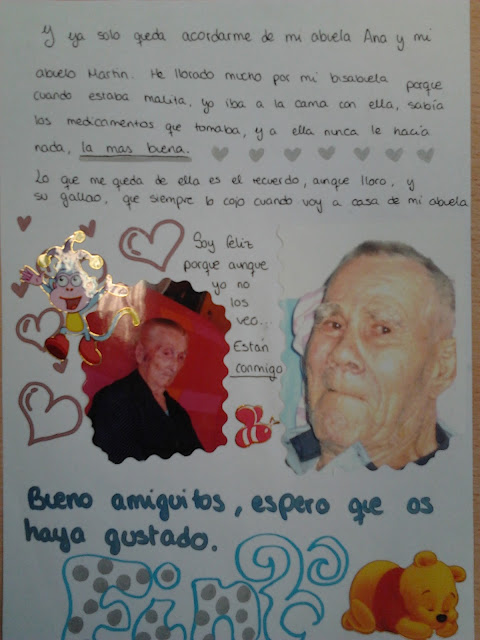 Y ya solo queda acordarme de mi abuela Ana y mi
abuelo Martin. He llorado mucho por mi bisabuela porque
cuando estaba malita, yo iba a la cama con ella, sabía
los medicamentos que tomaba, y a ella nunca le hacía
nada, la mas buena.
Lo que me queda de ella es el recuerdo, aunque lloro, y
su gallao, que siempre lo cojo cuando voy a casa de mi abuela
Soy feliz
porque aunque
yo no
los
veo...
Están
conmigo
Bueno amiguitos, espero que os
haya gustado.
Fin